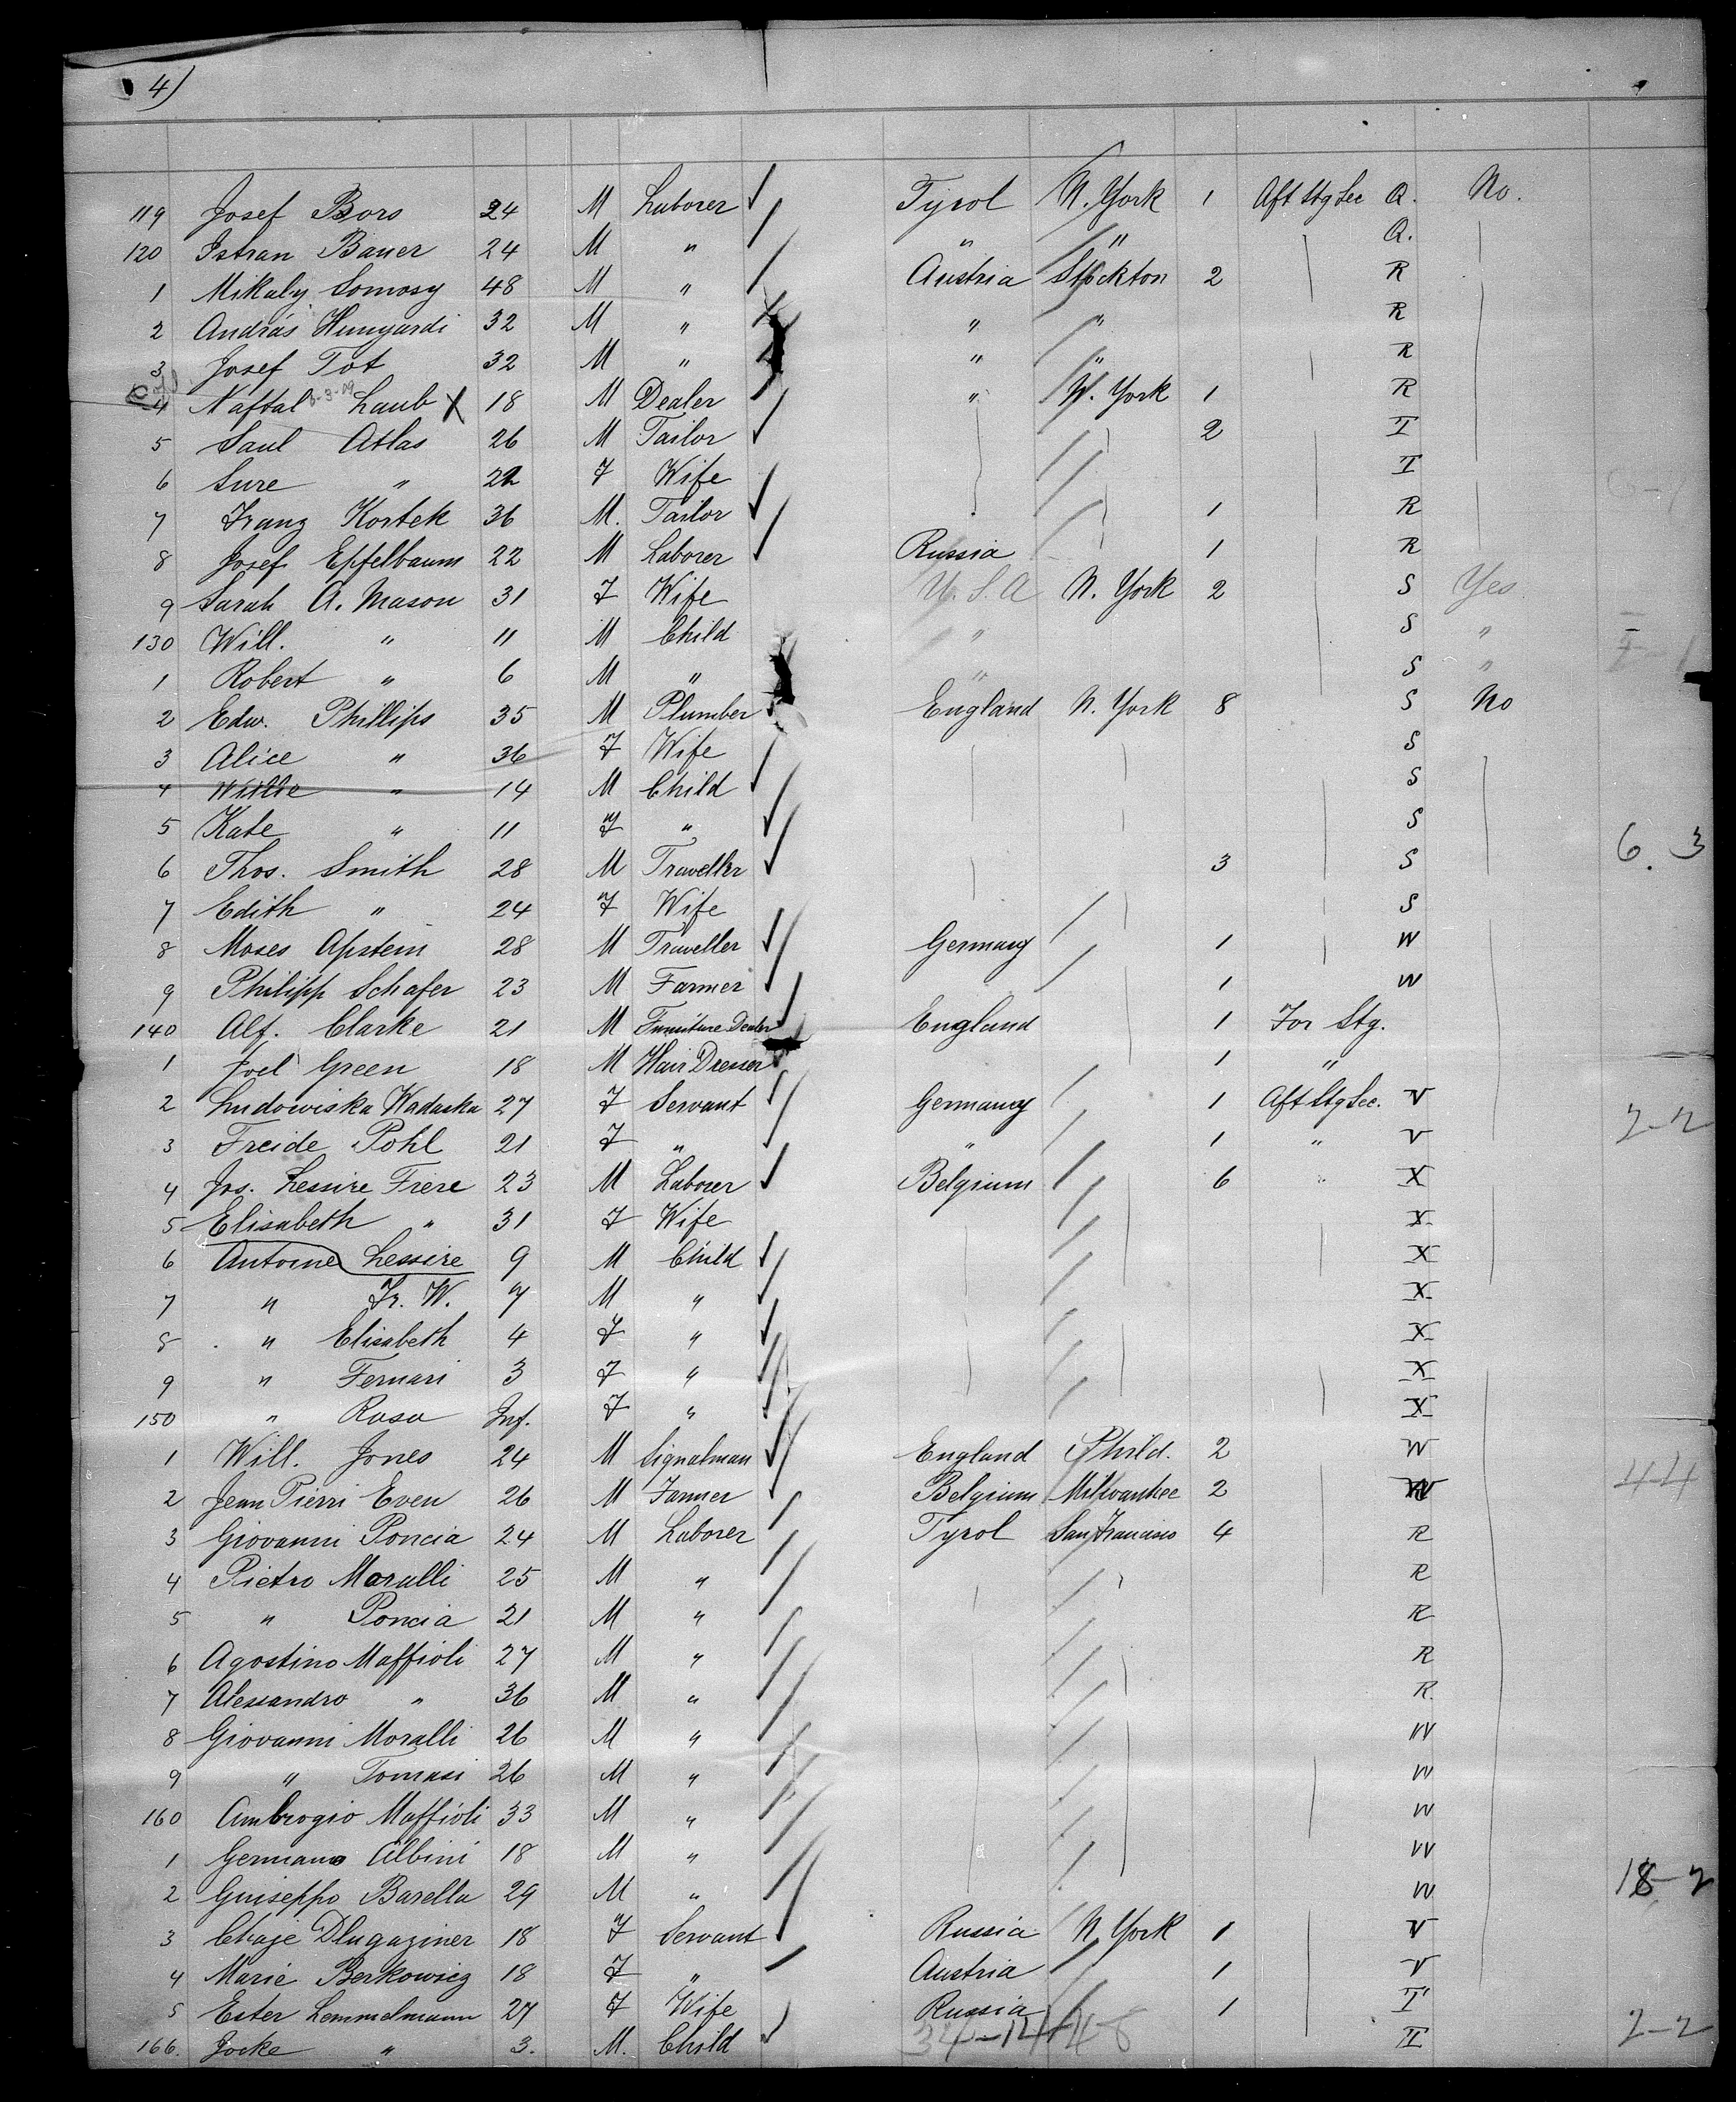 4)
119 Josef Bors 24 M Laborer Tyrol N. York 1 Aft Stg Sec Q. No.
120 Istran Bauer 24 M " " " Q.
1 Mikaly Somosy 48 M " Austria Stockton 2 R
2 András Hunyardi 32 M " " " R
3 Josef Tot 32 M " " " R
4 Naftal Laub X 18 M Dealer " N. York 1 R
5 Saul Atlas 26 M Tailor 2 T
6 Sure " 22 F Wife T
7 Franz Kostek 36 M. Tailor 1 R
8 Josef Epfelbaum 22 M Laborer Russia 1 R
9 Sarah A. Mason 31 F Wife U.S.A N. York 2 S Yes.
130 Will. " 11 M Child " S "
1 Robert " 6 M " " S "
2 Edw. Phillips 35 M Plumber England N. York 8 S No
3 Alice " 36 F Wife S
4 Willie " 14 M Child S
5 Kate " 11 F " S
6 Thos. Smith 28 M Traveller 3 S 6. 3
7 Edith " 24 F Wife S
8 Moses Apstein 28 M Traveller Germany 1 W
9 Philipp Schafer 23 M Farmer 1 W
140 Alf. Clarke 21 M Furniture Dealer England 1 For Stg.
1 Joel Green 18 M Hair Dresser 1 "
2 Ludowiska Wadaska 27 F Servant Germany 1 Aft Stg Sec. V
3 Freide Pohl 21 F " " 1 " V 2-2
4 Jos. Lessire Frere 23 M Laborer Belgium 6 " X
5 Elisabeth " 31 F Wife X
6 Antoine Lessire 9 M Child X
7 " Fr. W. 7 M " X
8 " Elisabeth 4 F " X
9 " Fernari 3 F " X
150 " Rosa Inf. F " X
1 Will. Jones 24 M Signalman England Phild. 2 W
2 Jean Pierri Even 26 M Farmer Belgium Milwaukee 2 W 4-4
3 Giovanni Poncia 24 M Laborer Tyrol San Francisco 4 R
4 Pietro Moralli 25 M " R
5 " Poncia 21 M " R
6 Agostino Maffioli 27 M " R
7 Alessandro " 36 M " R.
8 Giovanni Moralli 26 M " W
9 " Tomasi 26 M " W
160 Ambrogio Maffioli 33 M " W
1 Germano Albini 18 M " W
2 Guiseppo Barella 29 M " W 18-2
3 Chaje Dlugaziner 18 F Servant Russia N. York 1 V
4 Marie Berkowicz 18 F " Austria 1 V
5 Ester Lemmelmann 27 F Wife Russia 1 T
166. Jocke " 3. M. Child T 2-2